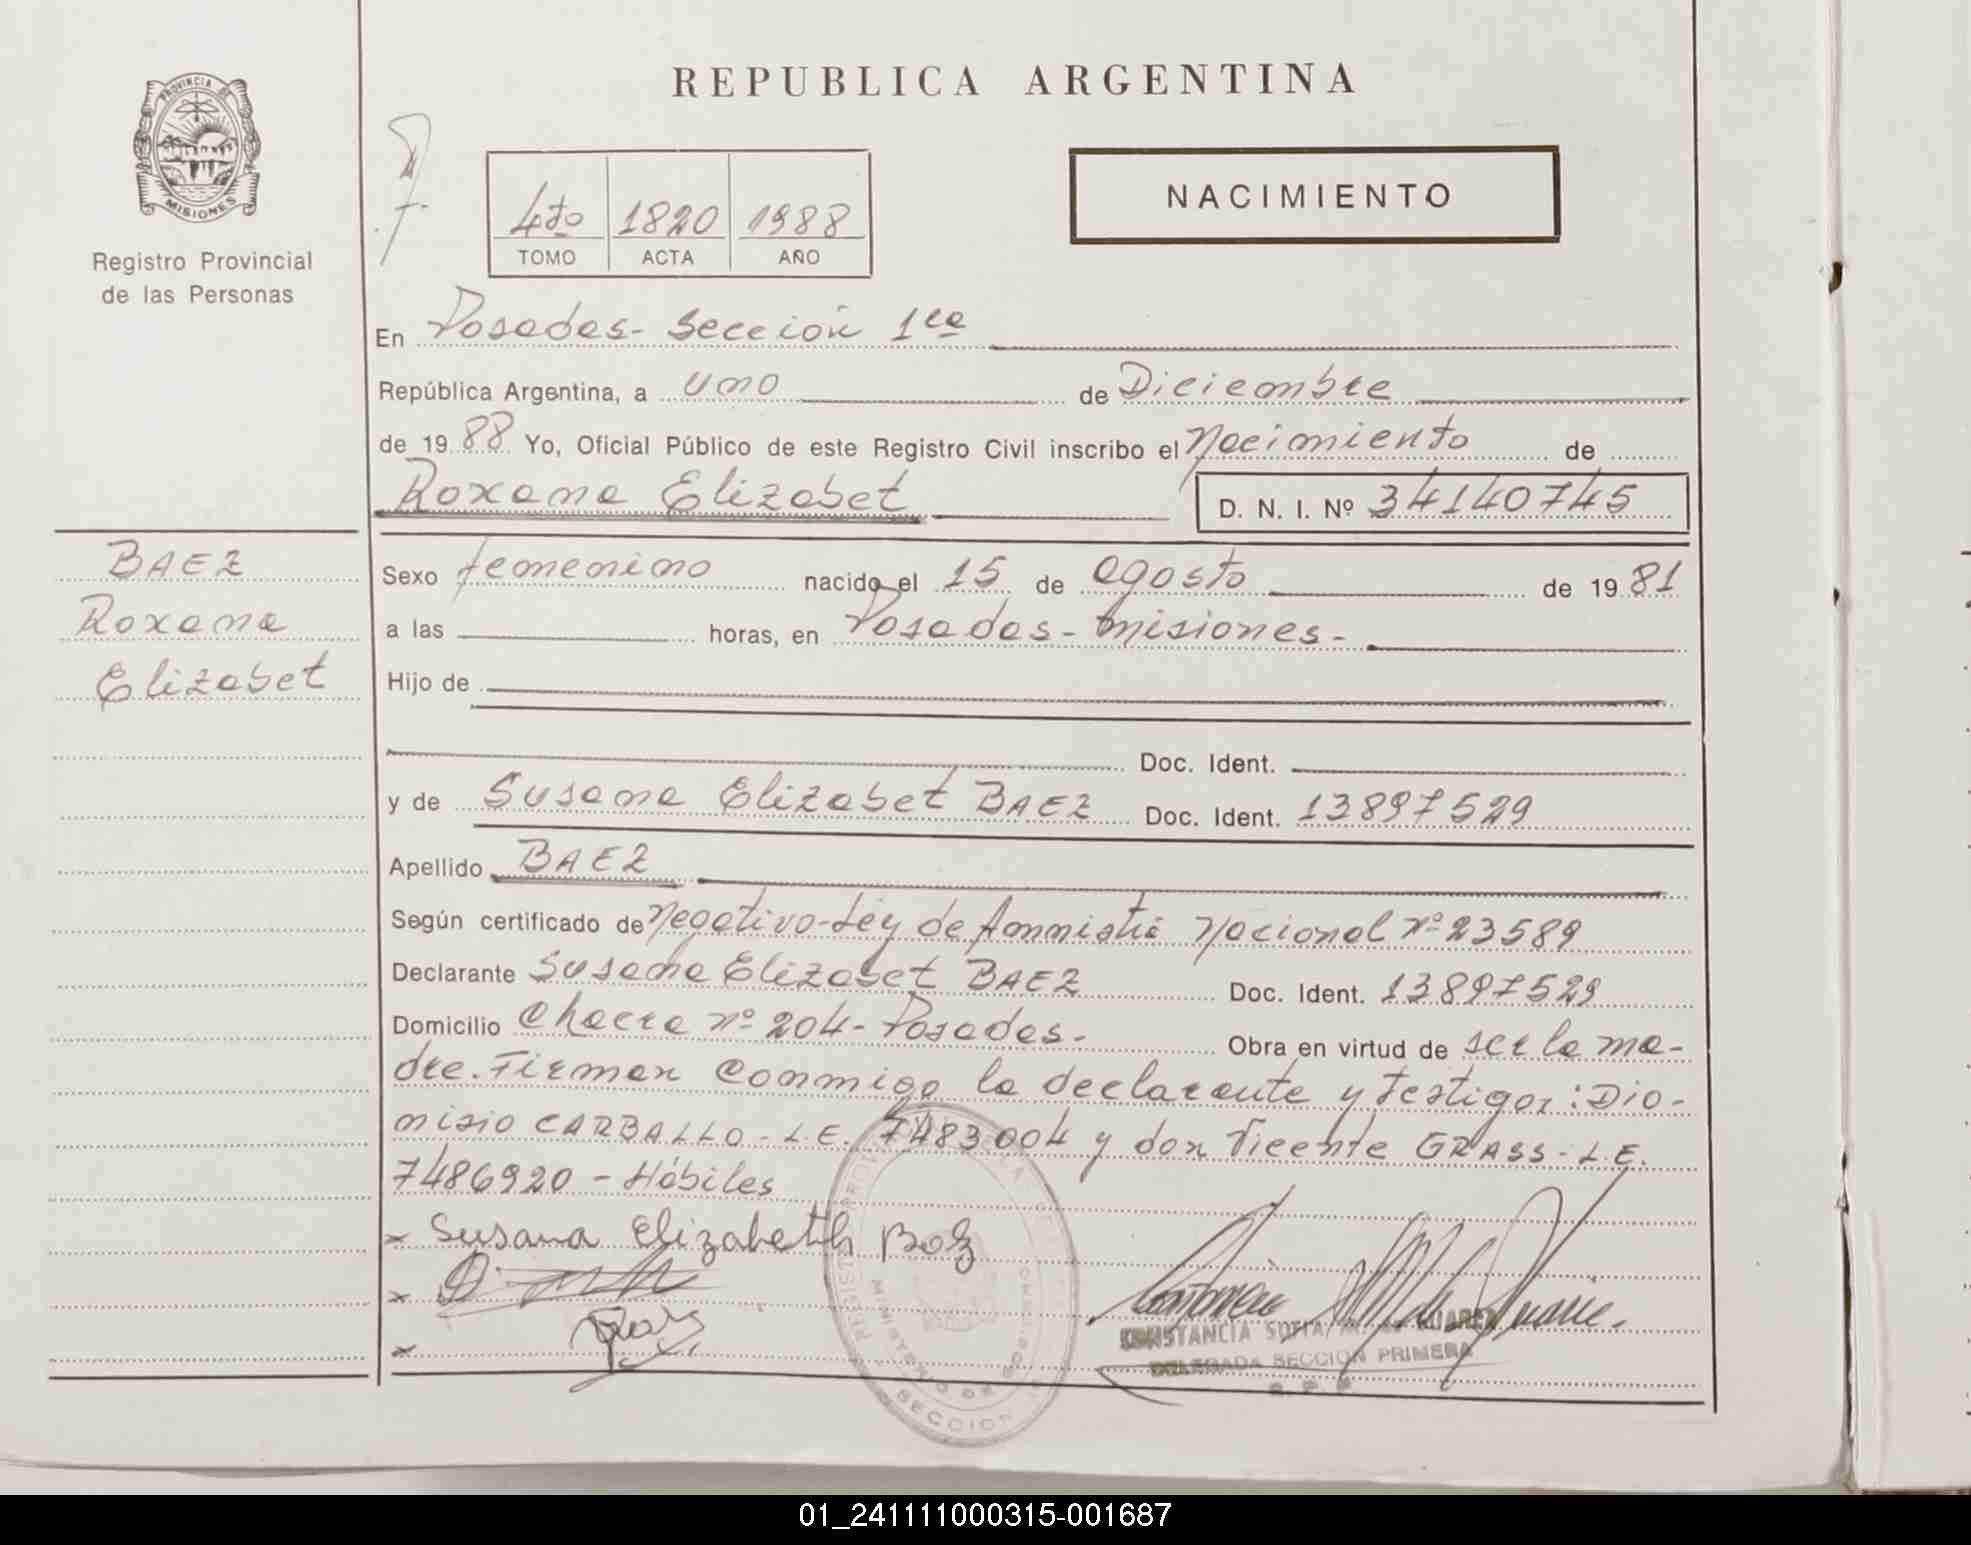 PROVINCIA DE
MISIONES
Registro Provincial
de las Personas
REPUBLICA ARGENTINA
4to 1820 1988
TOMO ACTA AÑO
NACIMIENTO
En Posadas - Sección 1ra
República Argentina, a uno de Diciembre
de 1988 Yo, Oficial Público de este Registro Civil inscribo el Nacimiento de
Roxana Elizabet D. N. I. Nº 34140745
BAEZ
Roxana
Elizabet
Sexo femenino nacido el 15 de agosto de 1981
a las horas, en Posadas - Misiones -
Hijo de
Doc. Ident.
y de Susana Elizabet BAEZ Doc. Ident. 13897529
Apellido BAEZ
Según certificado de Negativo - Ley de Amnistia Nacional Nº 23589
Declarante Susana Elizabet BAEZ Doc. Ident. 13897529
Domicilio Chacra nº 204 - Posadas - Obra en virtud de ser la ma-
dre. Firman conmigo la declarante y testigos: Dio-
nisio CARBALLO - L.E. 7483004 y don Vicente GRASS - L.E.
7486920 - Hábiles
x Susana Elizabeth Baez
x
x
CONSTANCIA SOFIA M. DE SUAREZ
DELEGADA SECCION PRIMERA
R. P. P.
01_241111000315-001687